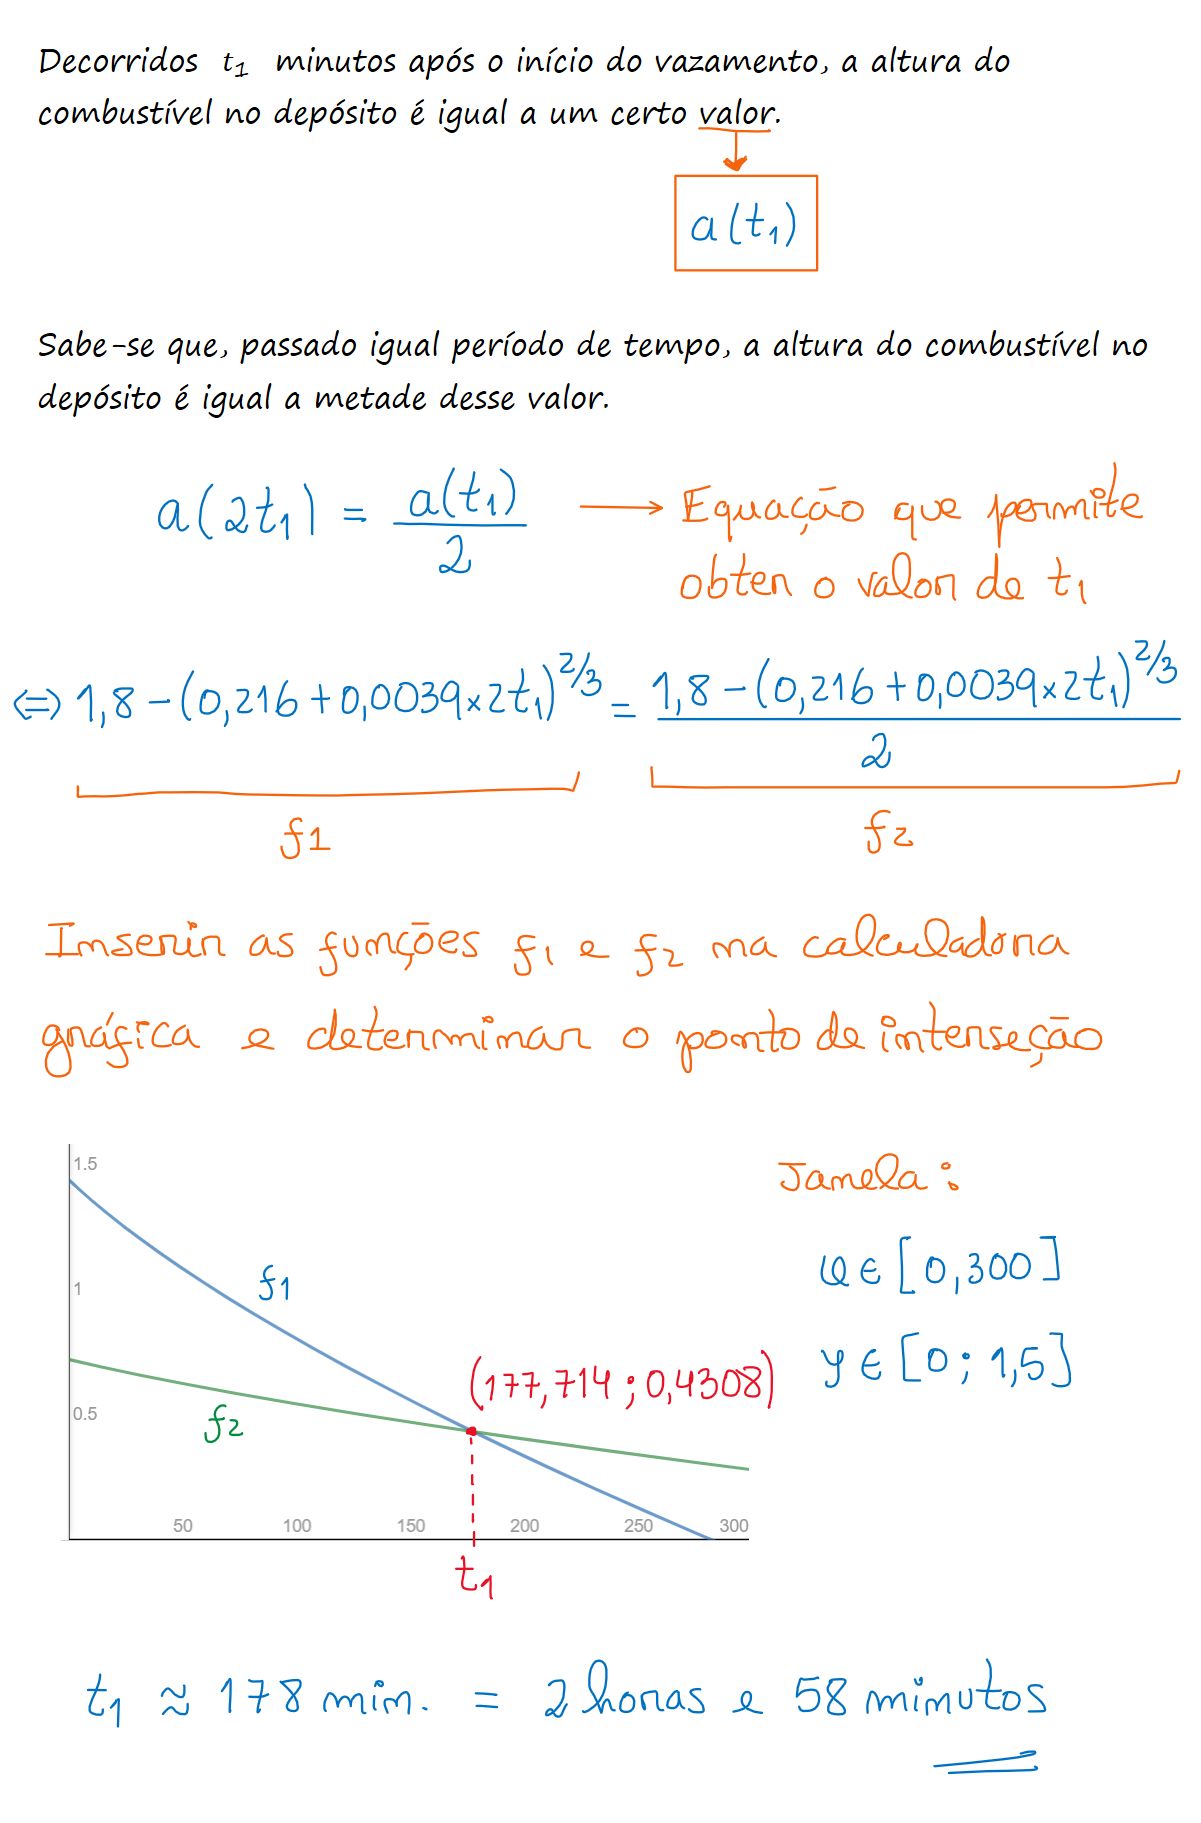 Decorridos t₁ minutos após o início do vazamento, a altura do
combustível no depósito é igual a um certo valor.
a(t₁)
Sabe-se que, passado igual período de tempo, a altura do combustível no
depósito é igual a metade desse valor.
a(2t₁) = a(t₁)/2 → Equação que permite
obter o valor de t₁
⇔ 1,8 - (0,216 + 0,0039 × 2t₁)^2/3 = 1,8 - (0,216 + 0,0039 × 2t₁)^2/3 / 2
f1 f2
Inserir as funções f1 e f2 na calculadora
gráfica e determinar o ponto de interseção
1.5
1
0.5
f1
f2
(177,714 ; 0,4308)
50 100 150 200 250 300
t₁
Janela:
x ∈ [0,300]
y ∈ [0 ; 1,5]
t₁ ≈ 178 min. = 2 horas e 58 minutos